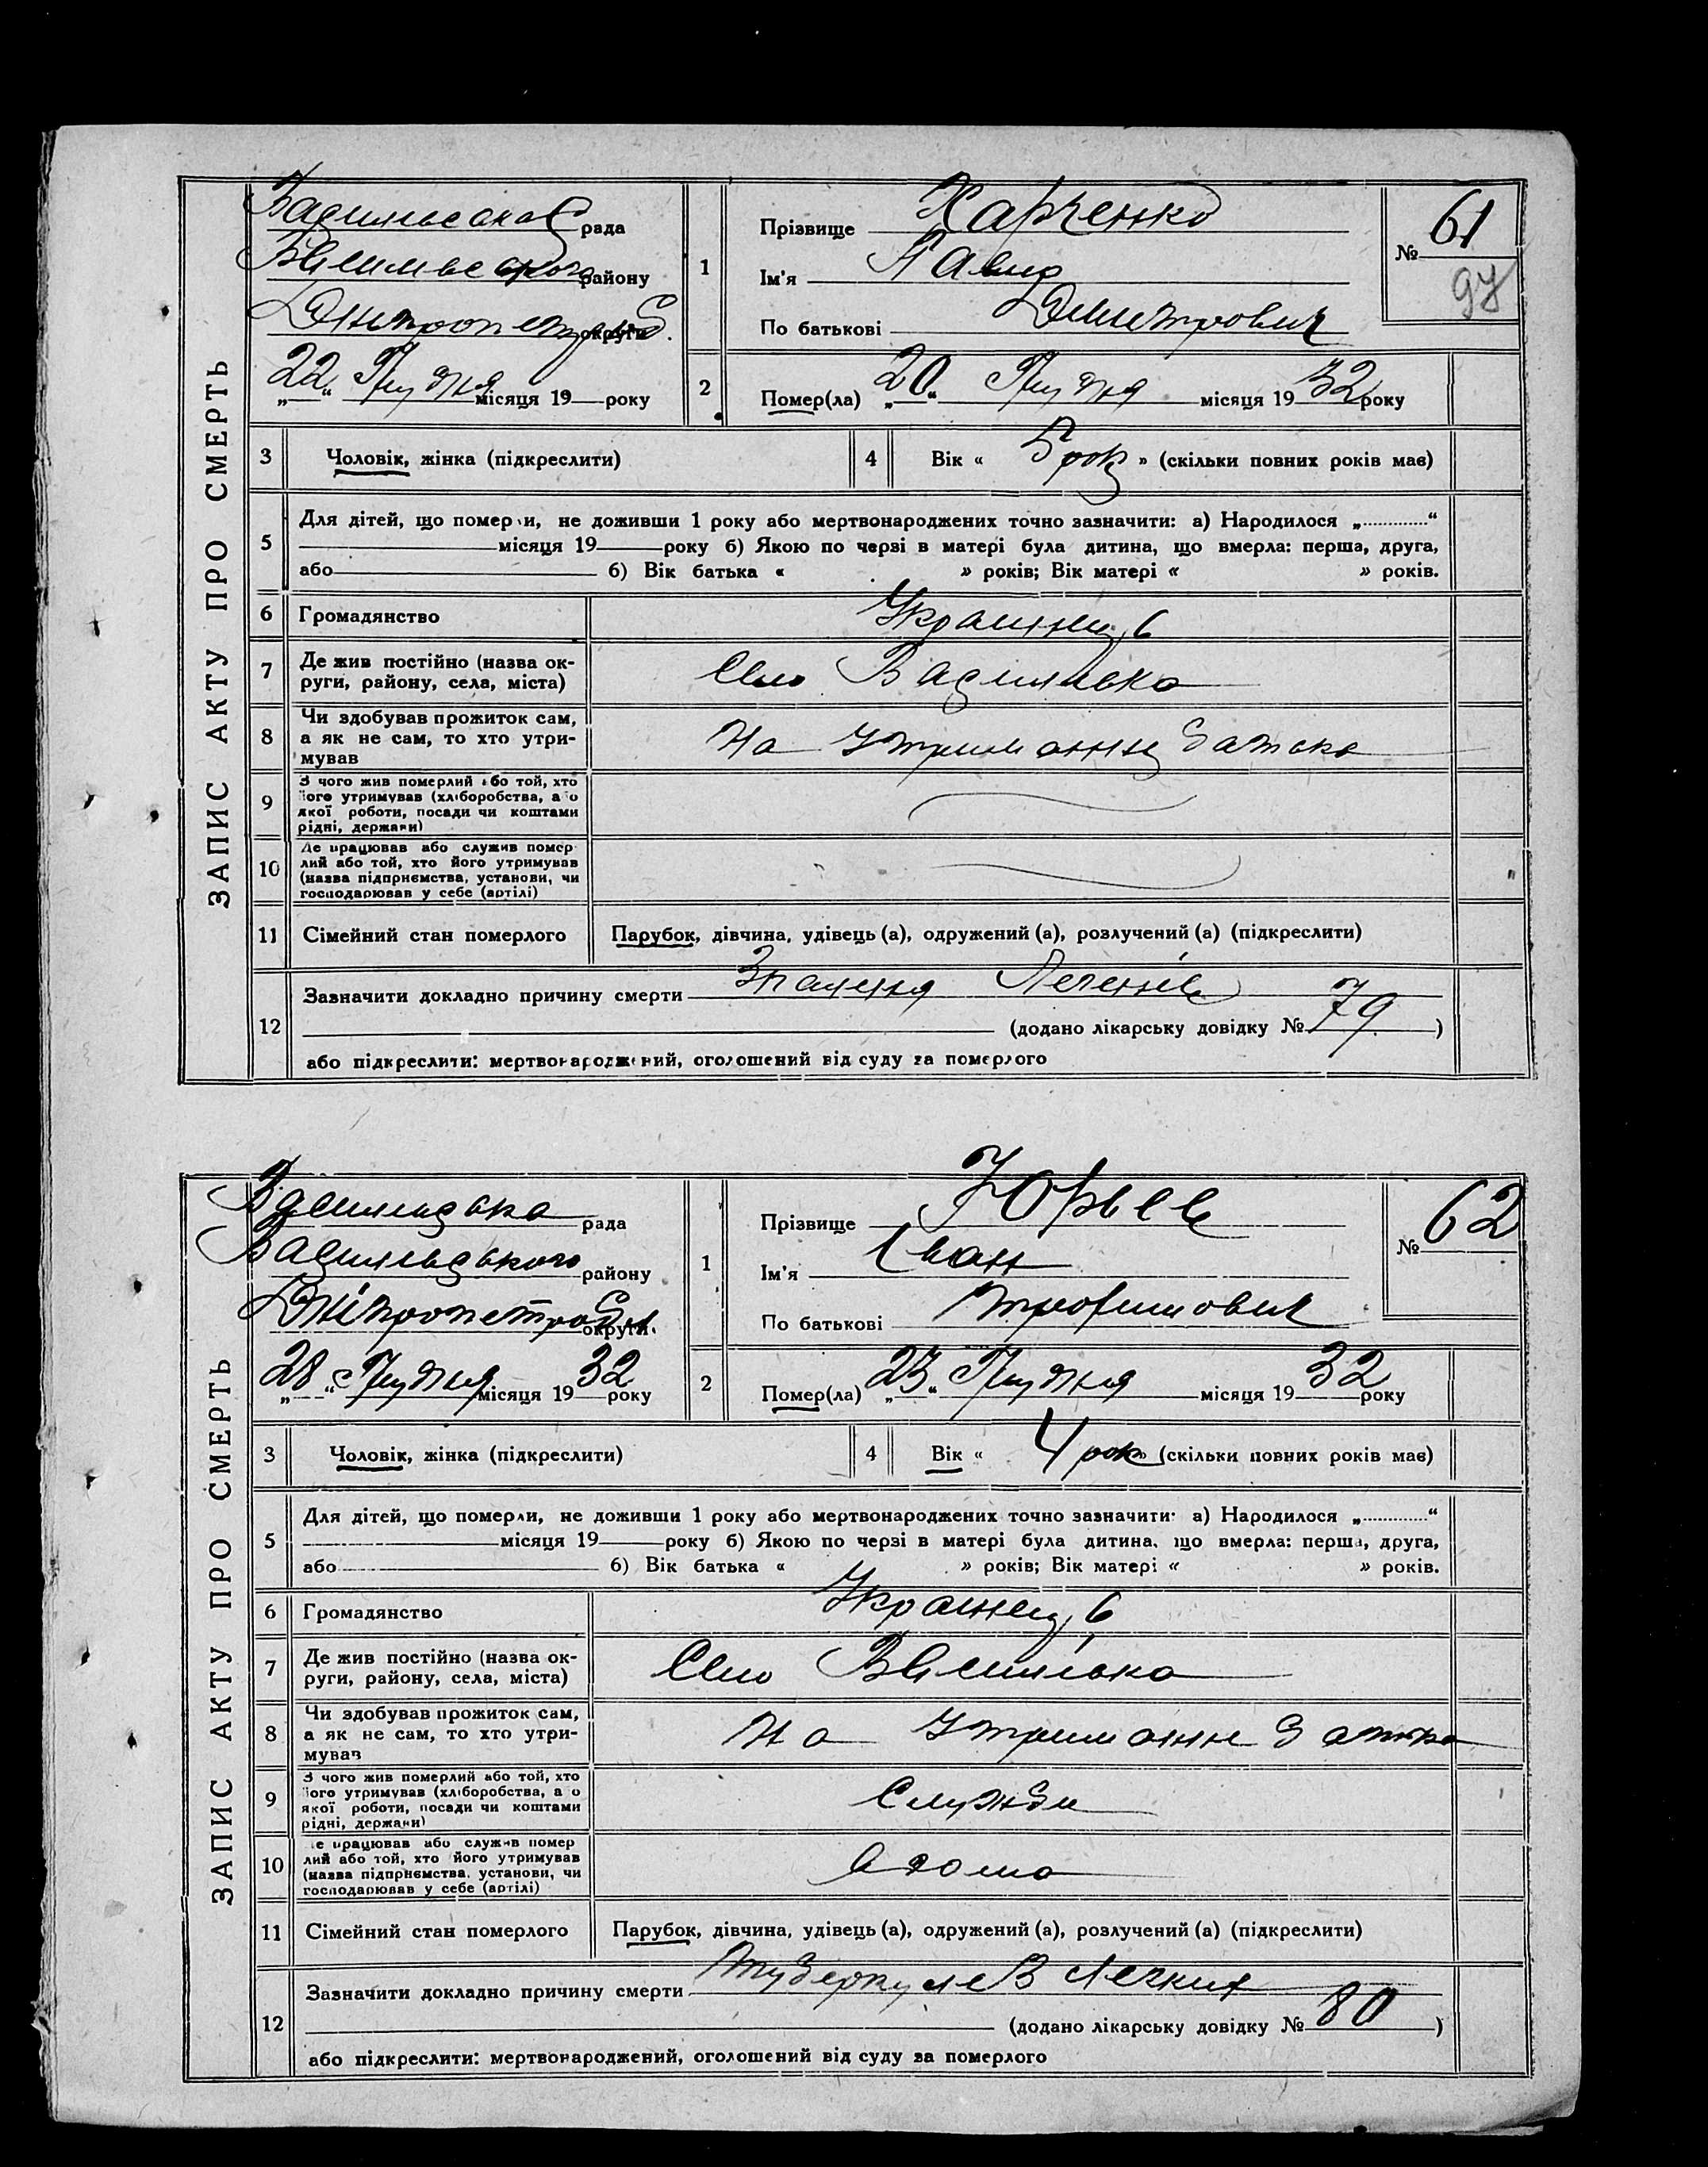 ЗАПИС АКТУ ПРО СМЕРТЬ
Васильевска рада
Васильевского району
Днипропетров округи
„22“ Грудня місяця 19 року
1
Прізвище Харченко
Ім'я Павло
По батькові Дмитрович
№ 61
97
2
Помер(ла) „20“ Грудня місяця 19 32 року
3
Чоловік, жінка (підкреслити)
4
Вік « 5 рок » (скільки повних років має)
5
Для дітей, що померли, не доживши 1 року або мертвонароджених точно зазначити: а) Народилося „.............“
місяця 19 року б) Якою по черзі в матері була дитина, що вмерла: перша, друга,
або б) Вік батька « » років; Вік матері « » років.
6
Громадянство
Украинец
7
Де жив постійно (назва ок-
руги, району, села, міста)
Село Василивка
8
Чи здобував прожиток сам,
а як не сам, то хто утри-
мував
На утриманни батька
9
З чого жив померлий або той, хто
його утримував (хліборобства, або
якої роботи, посади чи коштами
рідні, держави)
10
Де працював або служив помер
лий або той, хто його утримував
(назва підприємства, установи, чи
господарював у себе (артілі)
11
Сімейний стан померлого
Парубок, дівчина, удівець (а), одружений (а), розлучений (а) (підкреслити)
12
Зазначити докладно причину смерти Зпаления Легенів
(додано лікарську довідку № 79 )
або підкреслити: мертвонароджений, оголошений від суду за померлого
ЗАПИС АКТУ ПРО СМЕРТЬ
Васильевска рада
Васильевського району
Дніпропетров округи
„28“ Грудня місяця 19 32 року
1
Прізвище Юрьев
Ім'я Іван
По батькові Трофимович
№ 62
2
Помер(ла) „23“ Грудня місяця 19 32 року
3
Чоловік, жінка (підкреслити)
4
Вік « 4 рок » (скільки повних років має)
5
Для дітей, що померли, не доживши 1 року або мертвонароджених точно зазначити: а) Народилося „.............“
місяця 19 року б) Якою по черзі в матері була дитина, що вмерла: перша, друга,
або б) Вік батька « » років; Вік матері « » років.
6
Громадянство
Украинец
7
Де жив постійно (назва ок-
руги, району, села, міста)
Село Василівка
8
Чи здобував прожиток сам,
а як не сам, то хто утри-
мував
На утриманни батька
9
З чого жив померлий або той, хто
його утримував (хліборобства, або
якої роботи, посади чи коштами
рідні, держави)
Служби
10
Де працював або служив помер
лий або той, хто його утримував
(назва підприємства, установи, чи
господарював у себе (артілі)
11
Сімейний стан померлого
Парубок, дівчина, удівець (а), одружений (а), розлучений (а) (підкреслити)
12
Зазначити докладно причину смерти Туберкулев Легких
(додано лікарську довідку № 80 )
або підкреслити: мертвонароджений, оголошений від суду за померлого